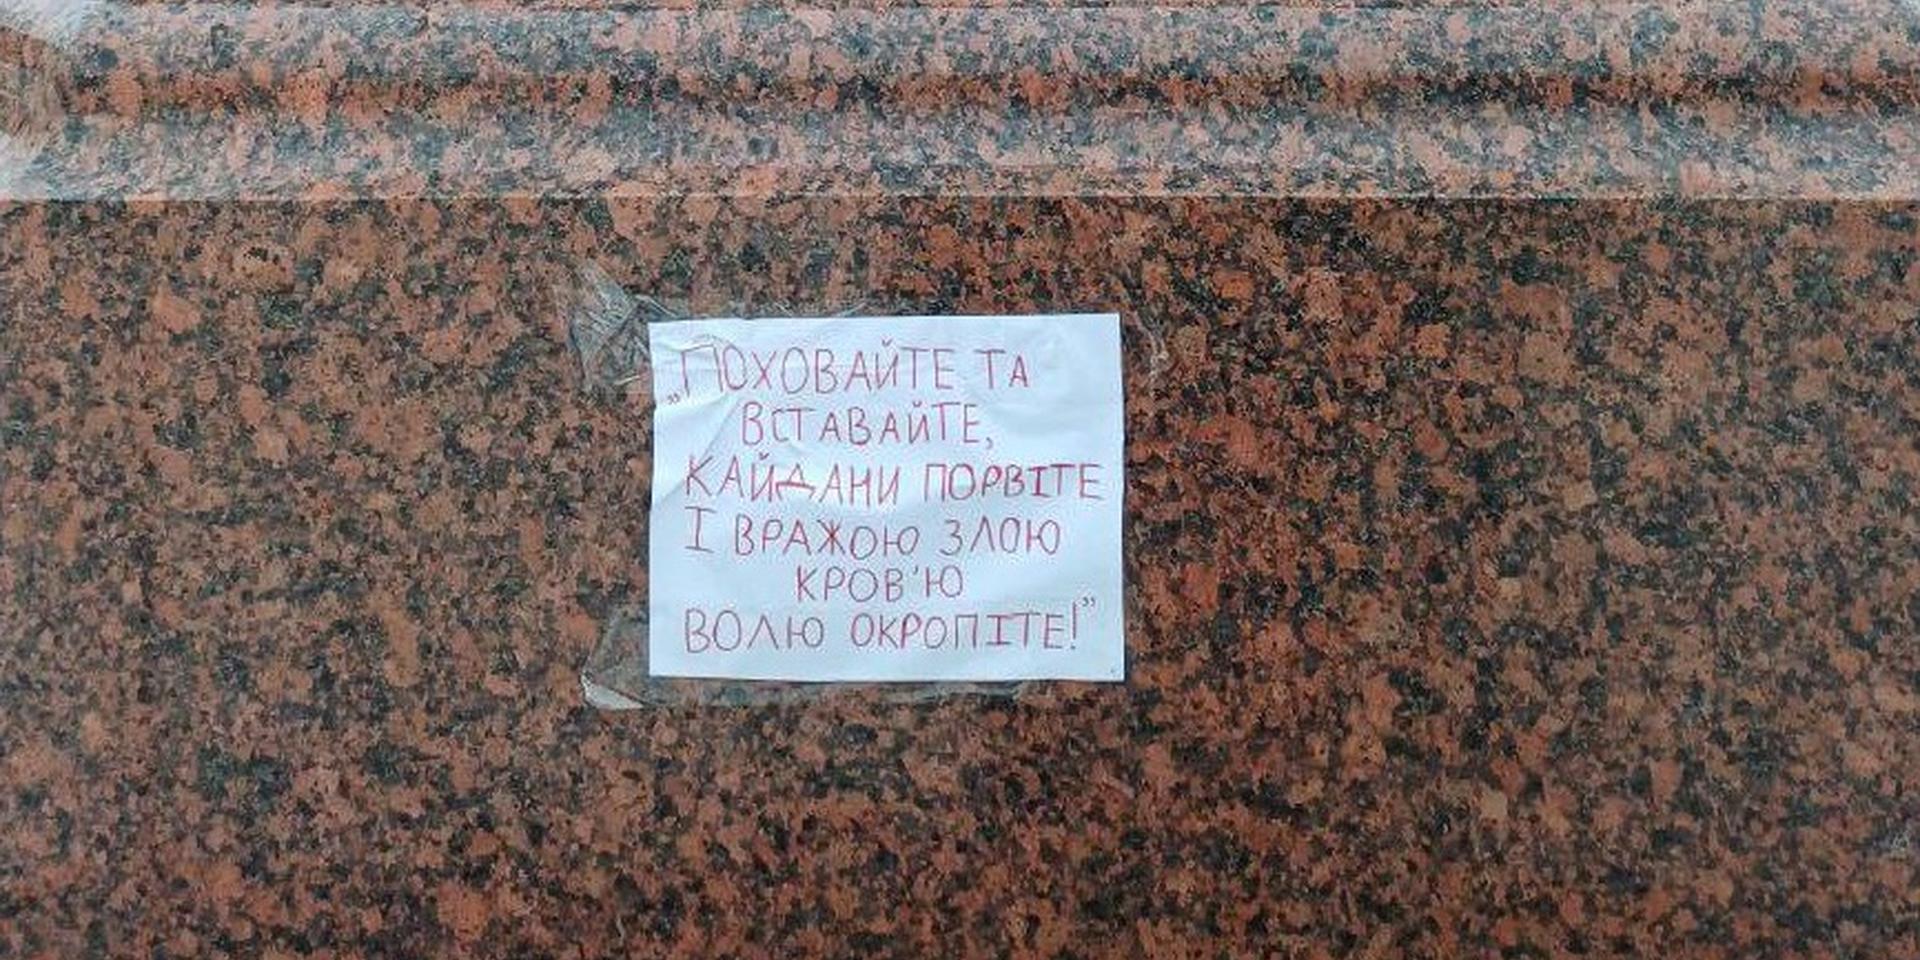 „ПОХОВАЙТЕ ТА
ВСТАВАЙТЕ,
КАЙДАНИ ПОРВІТЕ
І ВРАЖОЮ ЗЛОЮ
КРОВ'Ю
ВОЛЮ ОКРОПІТЕ!”